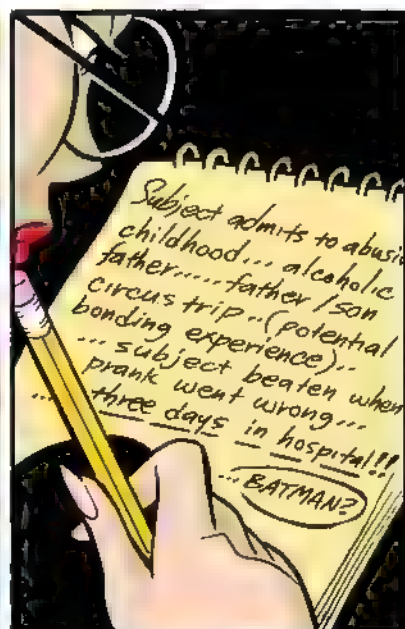 Subject admits to abusiv
childhood... alcoholic
father..... father/son
circus trip..(potential
bonding experience)..
... subject beaten when
prank went wrong...
... three days in hospital!!
...BATMAN?